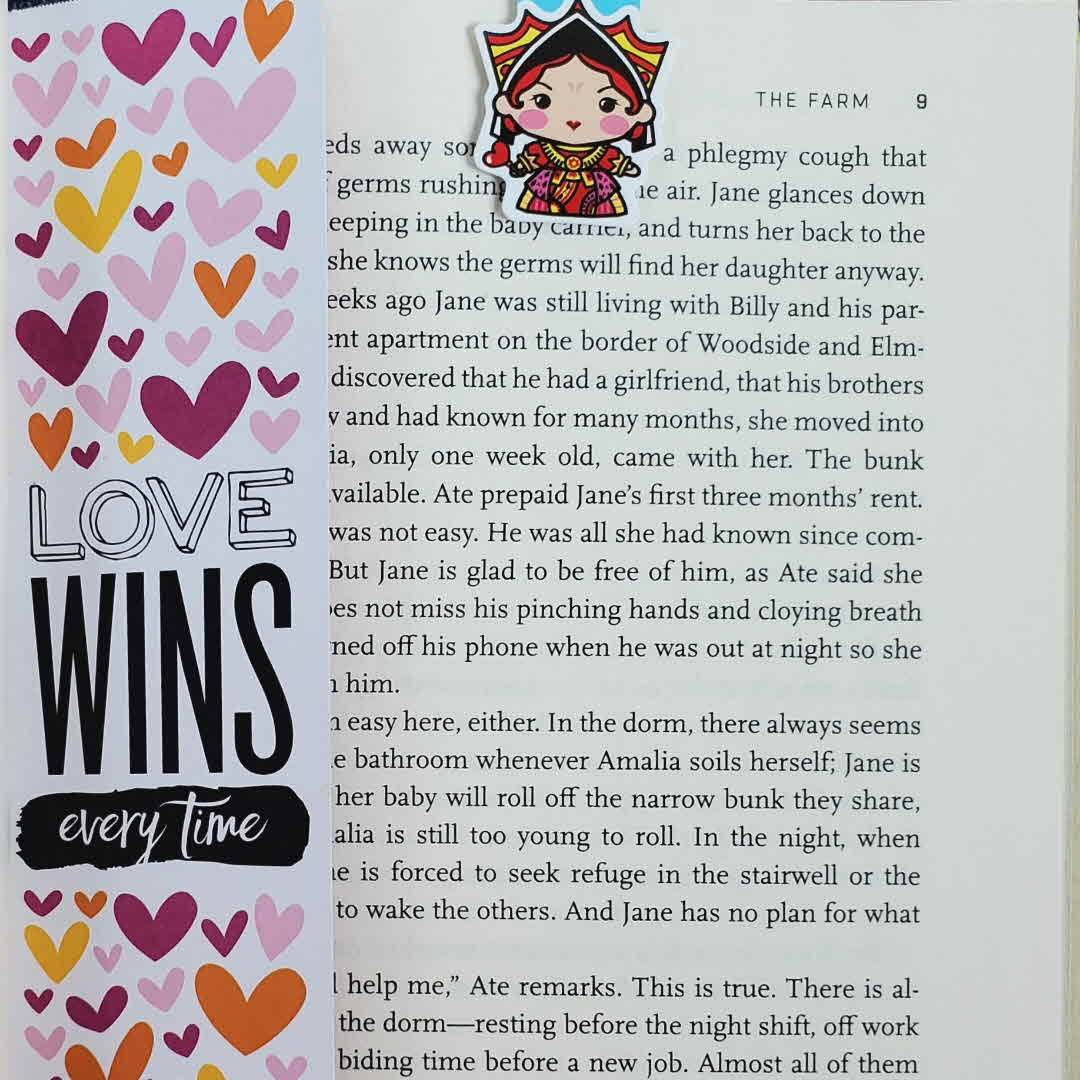 THE FARM 9
LOVE
WINS
every time
eds away a phlegmy cough that
germs rushing air. Jane glances down
eeping in the baby carrier, and turns her back to the
she knows the germs will find her daughter anyway.
eeks ago Jane was still living with Billy and his par-
ent apartment on the border of Woodside and Elm-
discovered that he had a girlfriend, that his brothers
and had known for many months, she moved into
ia, only one week old, came with her. The bunk
vailable. Ate prepaid Jane’s first three months’ rent.
was not easy. He was all she had known since com-
But Jane is glad to be free of him, as Ate said she
es not miss his pinching hands and cloying breath
ned off his phone when he was out at night so she
him.
easy here, either. In the dorm, there always seems
e bathroom whenever Amalia soils herself; Jane is
her baby will roll off the narrow bunk they share,
alia is still too young to roll. In the night, when
e is forced to seek refuge in the stairwell or the
to wake the others. And Jane has no plan for what
help me,” Ate remarks. This is true. There is al-
the dorm—resting before the night shift, off work
biding time before a new job. Almost all of them